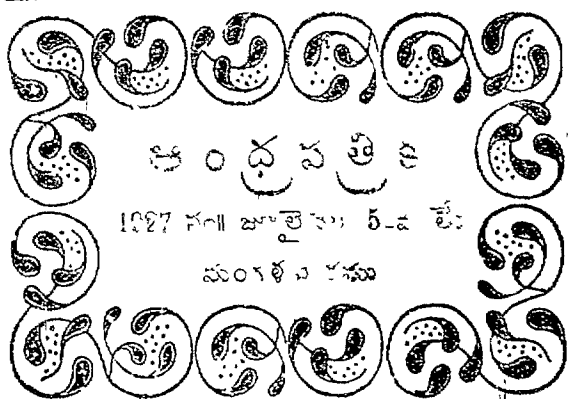 ఆంధ్రపత్రిక
1927 సం॥ జూలై నెల 5-వ తేది
మంగళవారము